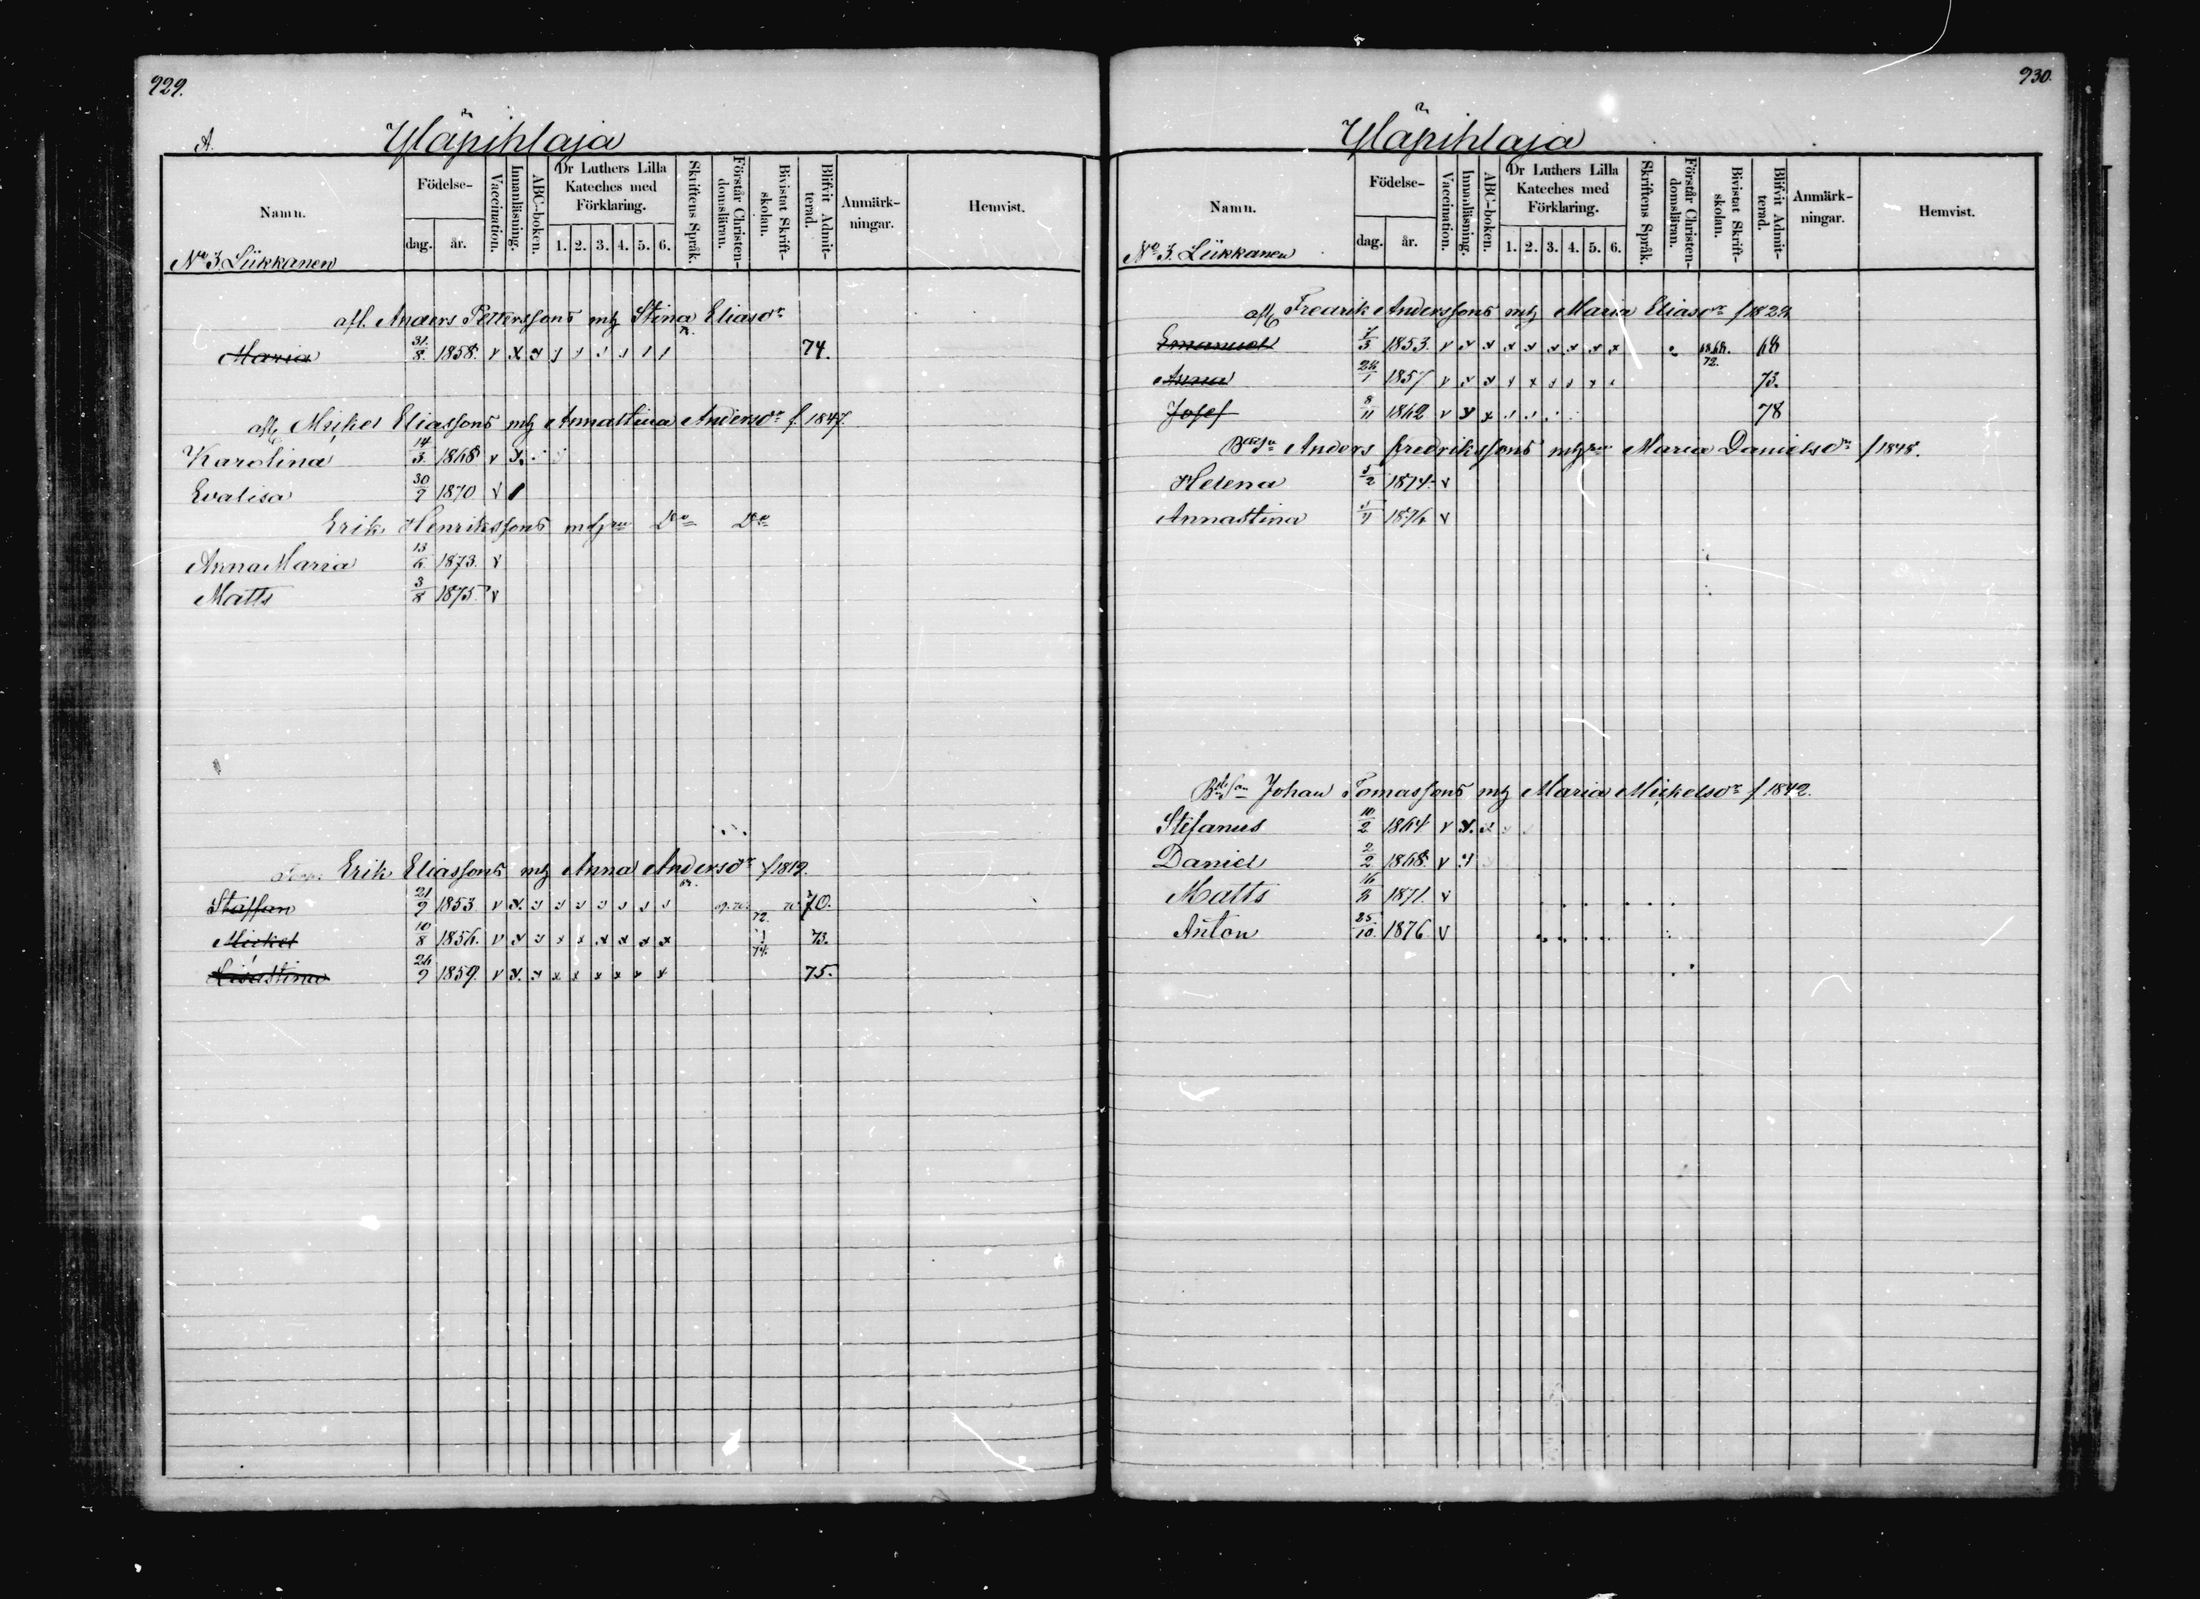 929.
A.
Yläpihlaja
Namn.
Födelse-
dag. år.
Vaccination.
Innanläsning.
ABC-boken.
Dr Luthers Lilla Kateches med Förklaring.
1. 2. 3. 4. 5. 6.
Skriftens Språk.
Förstår Christen-domsläran.
Bivistat Skrift-skolan.
Blifvit Admit-terad.
Anmärk-ningar.
Hemvist.
No 3 Liikkanen
afl. Anders Petterssons mhg Stina Eliasdr
Maria 31/8 1858. v x 74.
afl. Michel Eliassons mhg Annastina Andersdr f. 1847.
Karolina 14/3 1868 v x
Evalisa 30/9 1870 v
Erik Henrikssons Do Do
Anna Maria 13/6 1873. v
Matts 3/8 1875. v
Erik Eliassons mhg Anna Andersdr f 1819.
Staffan 21/9 1853 v x 70.
72.
Michel 10/8 1856. v x x x x x x x 73.
74.
Lisastina 26/9 1859. v x x x x x x x 75.
930.
Yläpihlaja
Namn.
Födelse-
dag. år.
Vaccination.
Innanläsning.
ABC-boken.
Dr Luthers Lilla Kateches med Förklaring.
1. 2. 3. 4. 5. 6.
Skriftens Språk.
Förstår Christen-domsläran.
Bivistat Skrift-skolan.
Blifvit Admit-terad.
Anmärk-ningar.
Hemvist.
No 3. Liikkanen
afl. Fredrik Anderssons mhg Maria Eliasdr f 1829.
Emanuel 1853. v x x x x x x x x 68
72.
Anna 1857 v x x 73.
Josef 8/11 1862 v x x 78
Anders Fredrikssons Maria Danielsdr f 1848.
Helena 5/2 1874. v
Annastina 1876 v
Johan Tomassons mhg Maria Michelsdr f 1842.
Stefanus 10/2 1864 v x.
Daniel 2/2 1868. v x
Matts 1871. v
Anton 25/10 1876. v